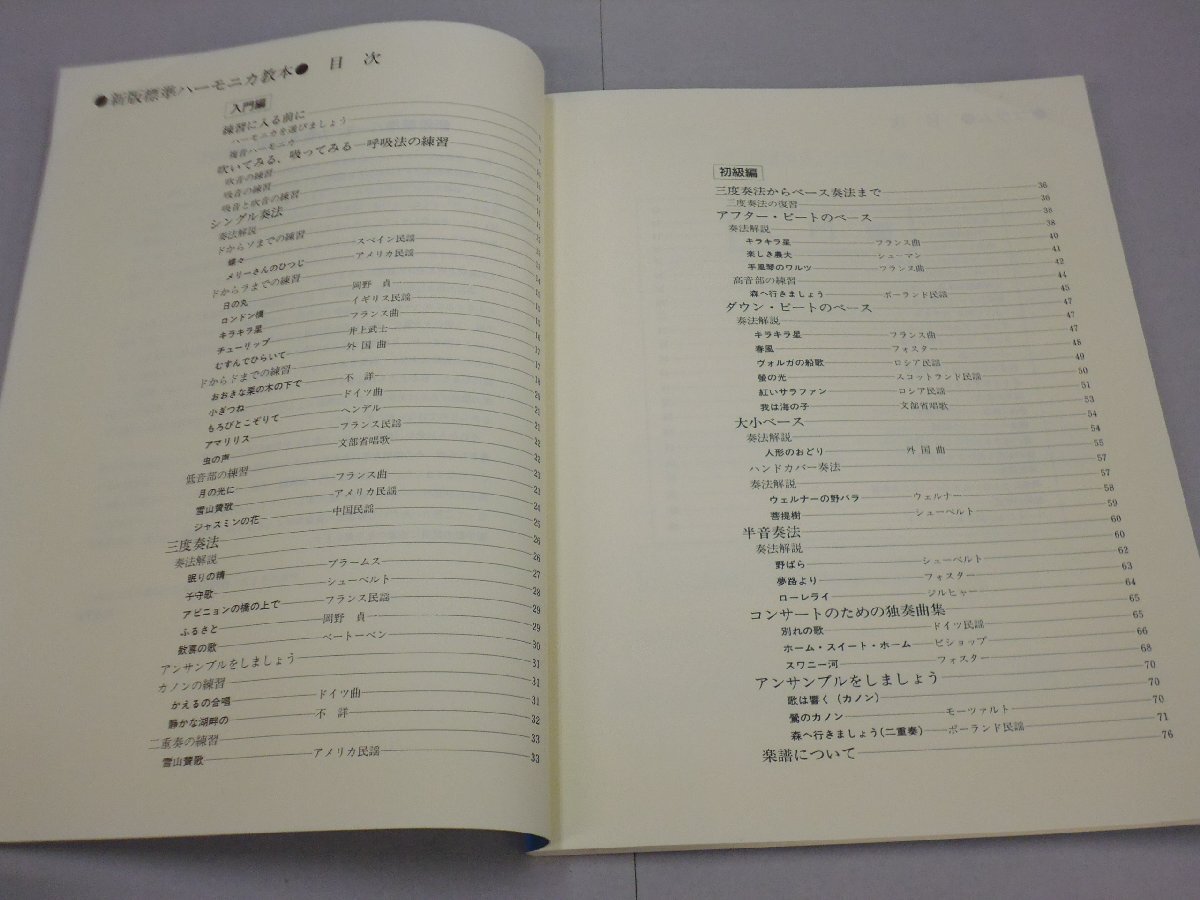 ●新版標準ハーモニカ教本● 目 次
入門編
練習に入る前に
ハーモニカを選びましょう
複音ハーモニカ
吹いてみる、吸ってみる—呼吸法の練習
吹音の練習
吸音の練習
吸音と吹音の練習
シングル奏法
奏法解説
ドからソまでの練習
蝶々 スペイン民謡
メリーさんのひつじ アメリカ民謡
ドからラまでの練習
日の丸 岡野 貞
ロンドン橋 イギリス民謡
キラキラ星 フランス曲
チューリップ 井上武士
むすんでひらいて 外国曲
ドからドまでの練習
おおきな栗の木の下で 不詳
小ぎつね ドイツ曲
もろびとこぞりて ヘンデル
アマリリス フランス民謡
虫の声 文部省唱歌
低音部の練習
月の光に フランス曲 23
雪山賛歌 アメリカ民謡 24
ジャスミンの花 中国民謡 25
三度奏法 26
奏法解説 26
眠りの精 ブラームス 27
子守歌 シューベルト 28
アビニョンの橋の上で フランス民謡 29
ふるさと 岡野 貞 29
歓喜の歌 ベートーベン 30
アンサンブルをしましょう 31
カノンの練習 31
かえるの合唱 ドイツ曲 31
静かな湖畔の 不詳 32
二重奏の練習 33
雪山賛歌 アメリカ民謡 33
初級編
三度奏法からベース奏法まで 36
二度奏法の復習 36
アフター・ビートのベース 38
奏法解説 38
キラキラ星 フランス曲 40
楽しき農夫 シューマン 41
手風琴のワルツ フランス曲 42
高音部の練習 44
森へ行きましょう ポーランド民謡 45
ダウン・ビートのベース 47
奏法解説 47
キラキラ星 フランス曲 47
春風 フォスター 48
ヴォルガの船歌 ロシア民謡 49
螢の光 スコットランド民謡 50
紅いサラファン ロシア民謡 51
我は海の子 文部省唱歌 53
大小ベース 54
奏法解説 54
人形のおどり 外国曲 55
ハンドカバー奏法 57
奏法解説 57
ウェルナーの野バラ ウェルナー 58
菩提樹 シューベルト 59
半音奏法 60
奏法解説 60
野ばら シューベルト 62
夢路より フォスター 63
ローレライ ジルヒャー 64
コンサートのための独奏曲集 65
別れの歌 ドイツ民謡 65
ホーム・スイート・ホーム ビショップ 66
スワニー河 フォスター 68
アンサンブルをしましょう 70
歌は響く（カノン） 70
鶯のカノン モーツァルト 70
森へ行きましょう(二重奏) ポーランド民謡 71
楽譜について 76